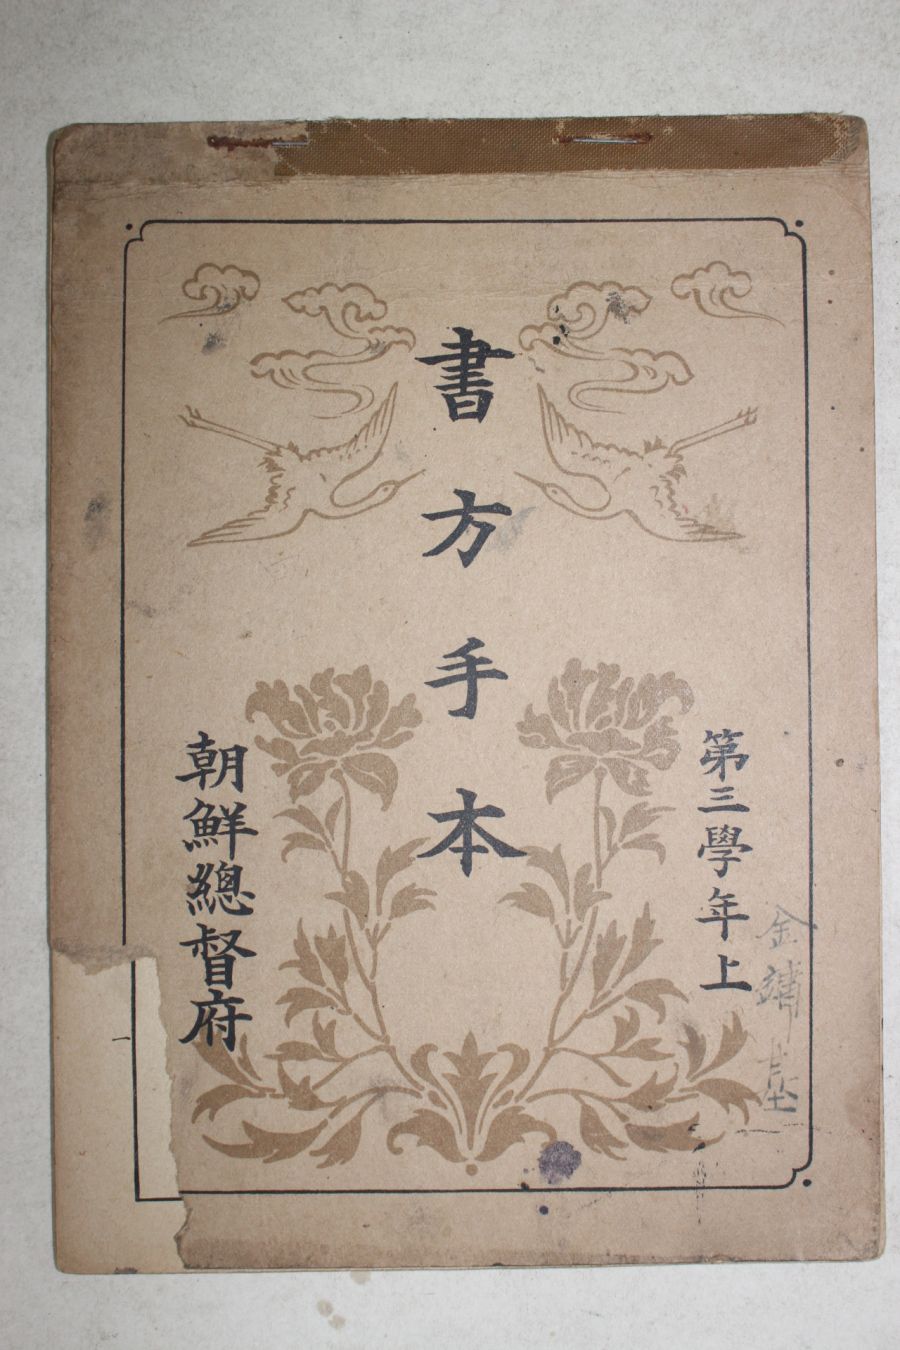 第三學年上
書方手本
朝鮮總督府
金